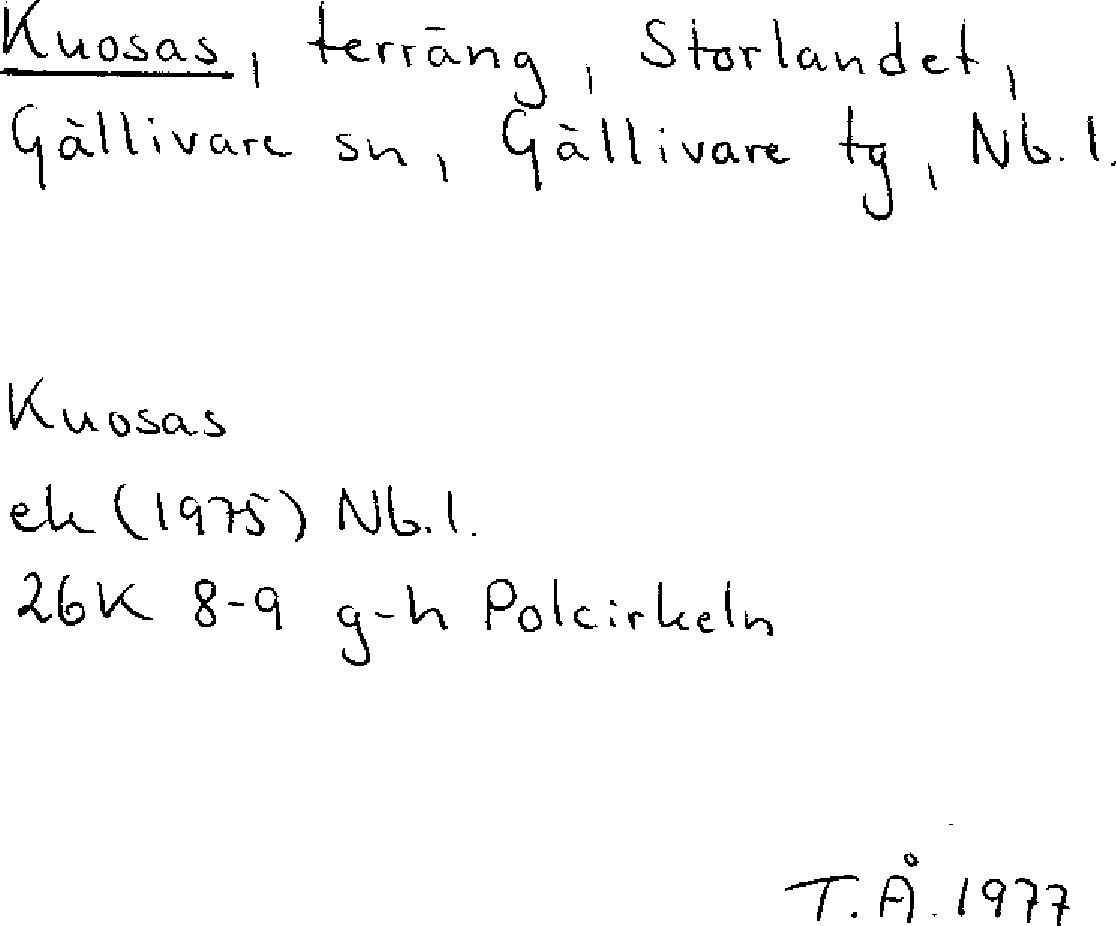 Kuosas, terräng, Storlandet,
Gällivare sn, Gällivare tg, Nb. l.
Kuosas
ek (1975) Nb. l.
26K 8-9 g-h Polcirkeln
T. Å. 1977